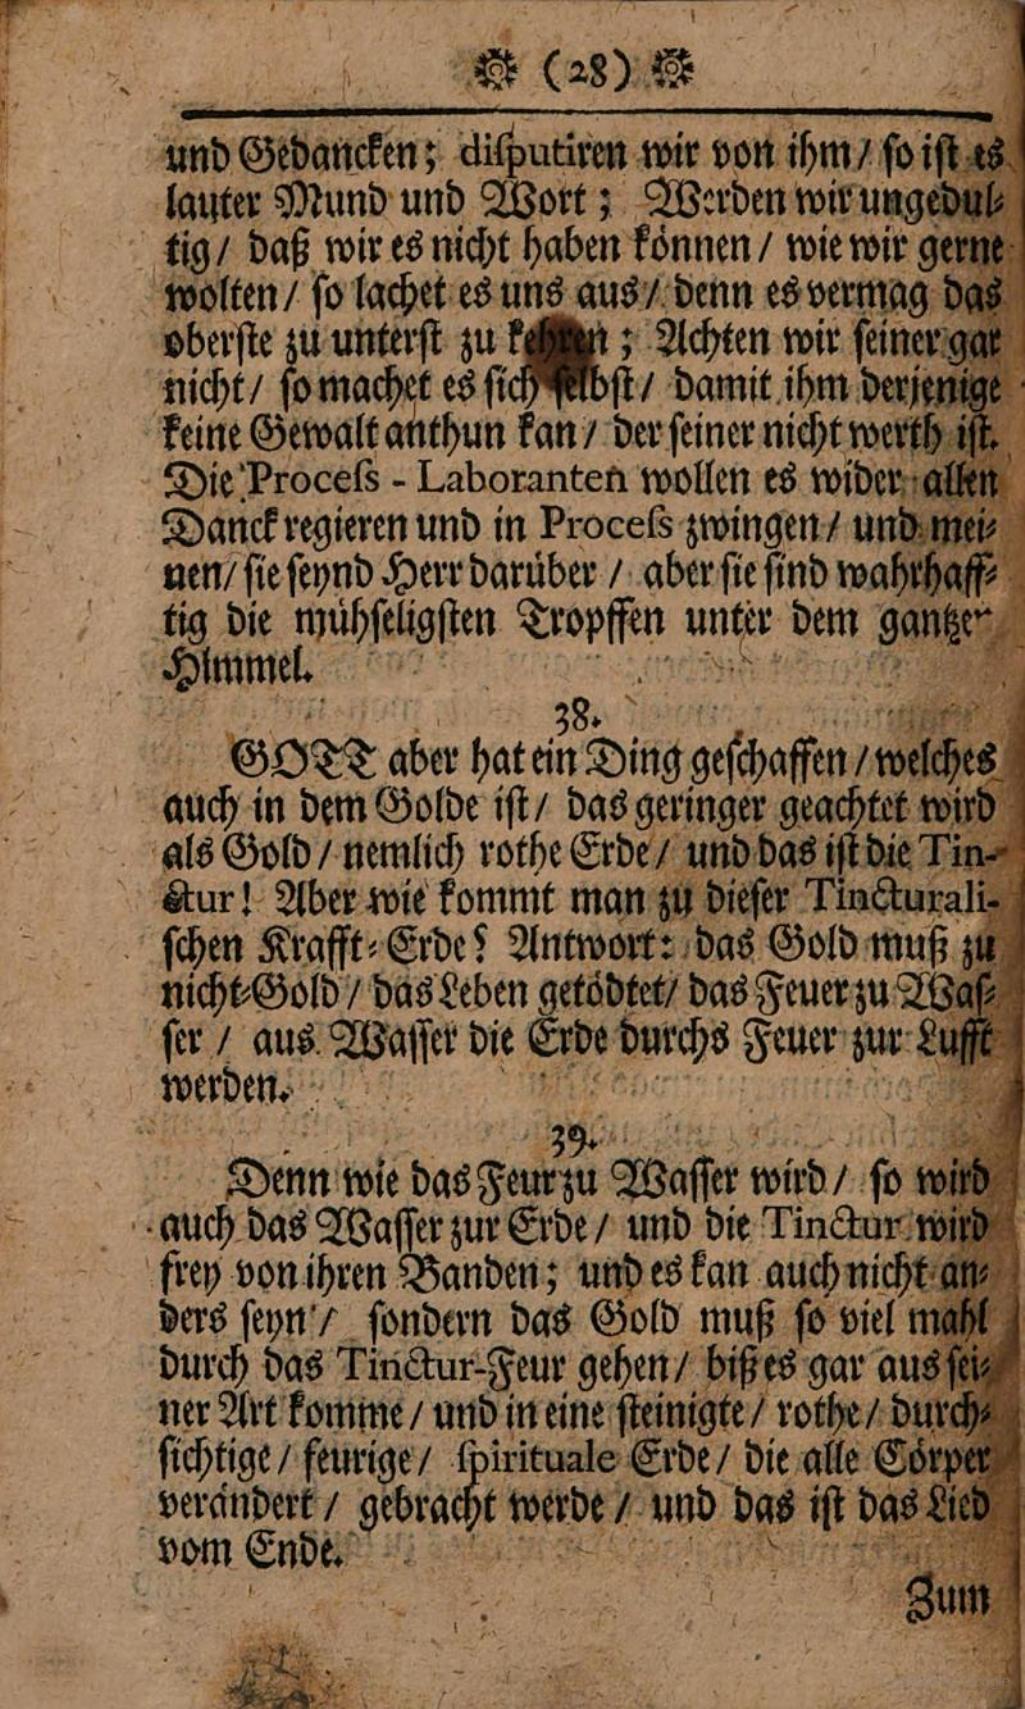 (28)
und Gedancken; disputiren wir von ihm / so ist es
lauter Mund und Wort; Werden wir ungedul-
tig / daß wir es nicht haben können / wie wir gerne
wolten / so lachet es uns aus / denn es vermag das
oberste zu unterst zu kehren; Achten wir seiner gar
nicht / so machet es sich selbst / damit ihm derjenige
keine Gewalt anthun kan / der seiner nicht werth ist.
Die Process-Laboranten wollen es wider allen
Danck regieren und in Process zwingen / und mei-
nen / sie seynd Herr darüber / aber sie sind wahrhaff-
tig die mühseligsten Tropffen unter dem gantzen
Himmel.
38.
GOTT aber hat ein Ding geschaffen / welches
auch in dem Golde ist / das geringer geachtet wird
als Gold / nemlich rothe Erde / und das ist die Tin-
ctur! Aber wie kommt man zu dieser Tincturali-
schen Krafft-Erde? Antwort: das Gold muß zu
nicht-Gold / das Leben getödtet / das Feuer zu Was-
ser / aus Wasser die Erde durchs Feuer zur Lufft
werden.
39.
Denn wie das Feur zu Wasser wird / so wird
auch das Wasser zur Erde / und die Tinctur wird
frey von ihren Banden; und es kan auch nicht an-
ders seyn / sondern das Gold muß so viel mahl
durch das Tinctur-Feur gehen / biß es gar aus sei-
ner Art komme / und in eine steinigte / rothe / durch-
sichtige / feurige / spirituale Erde / die alle Cörper
verändert / gebracht werde / und das ist das Lied
vom Ende.
Zum